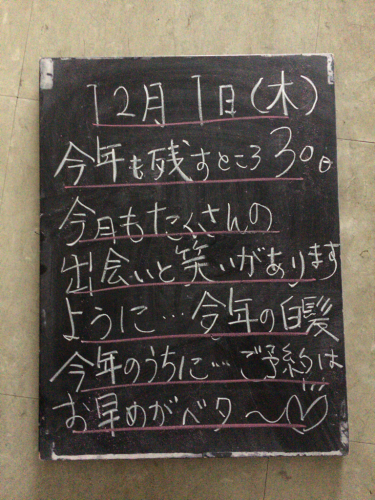 12月1日(木)
今年も残すところ30日
今日もたくさんの
出会いと笑いがあります
ように…今年の白髪
今年のうちに…ご予約は
お早めがベター〜